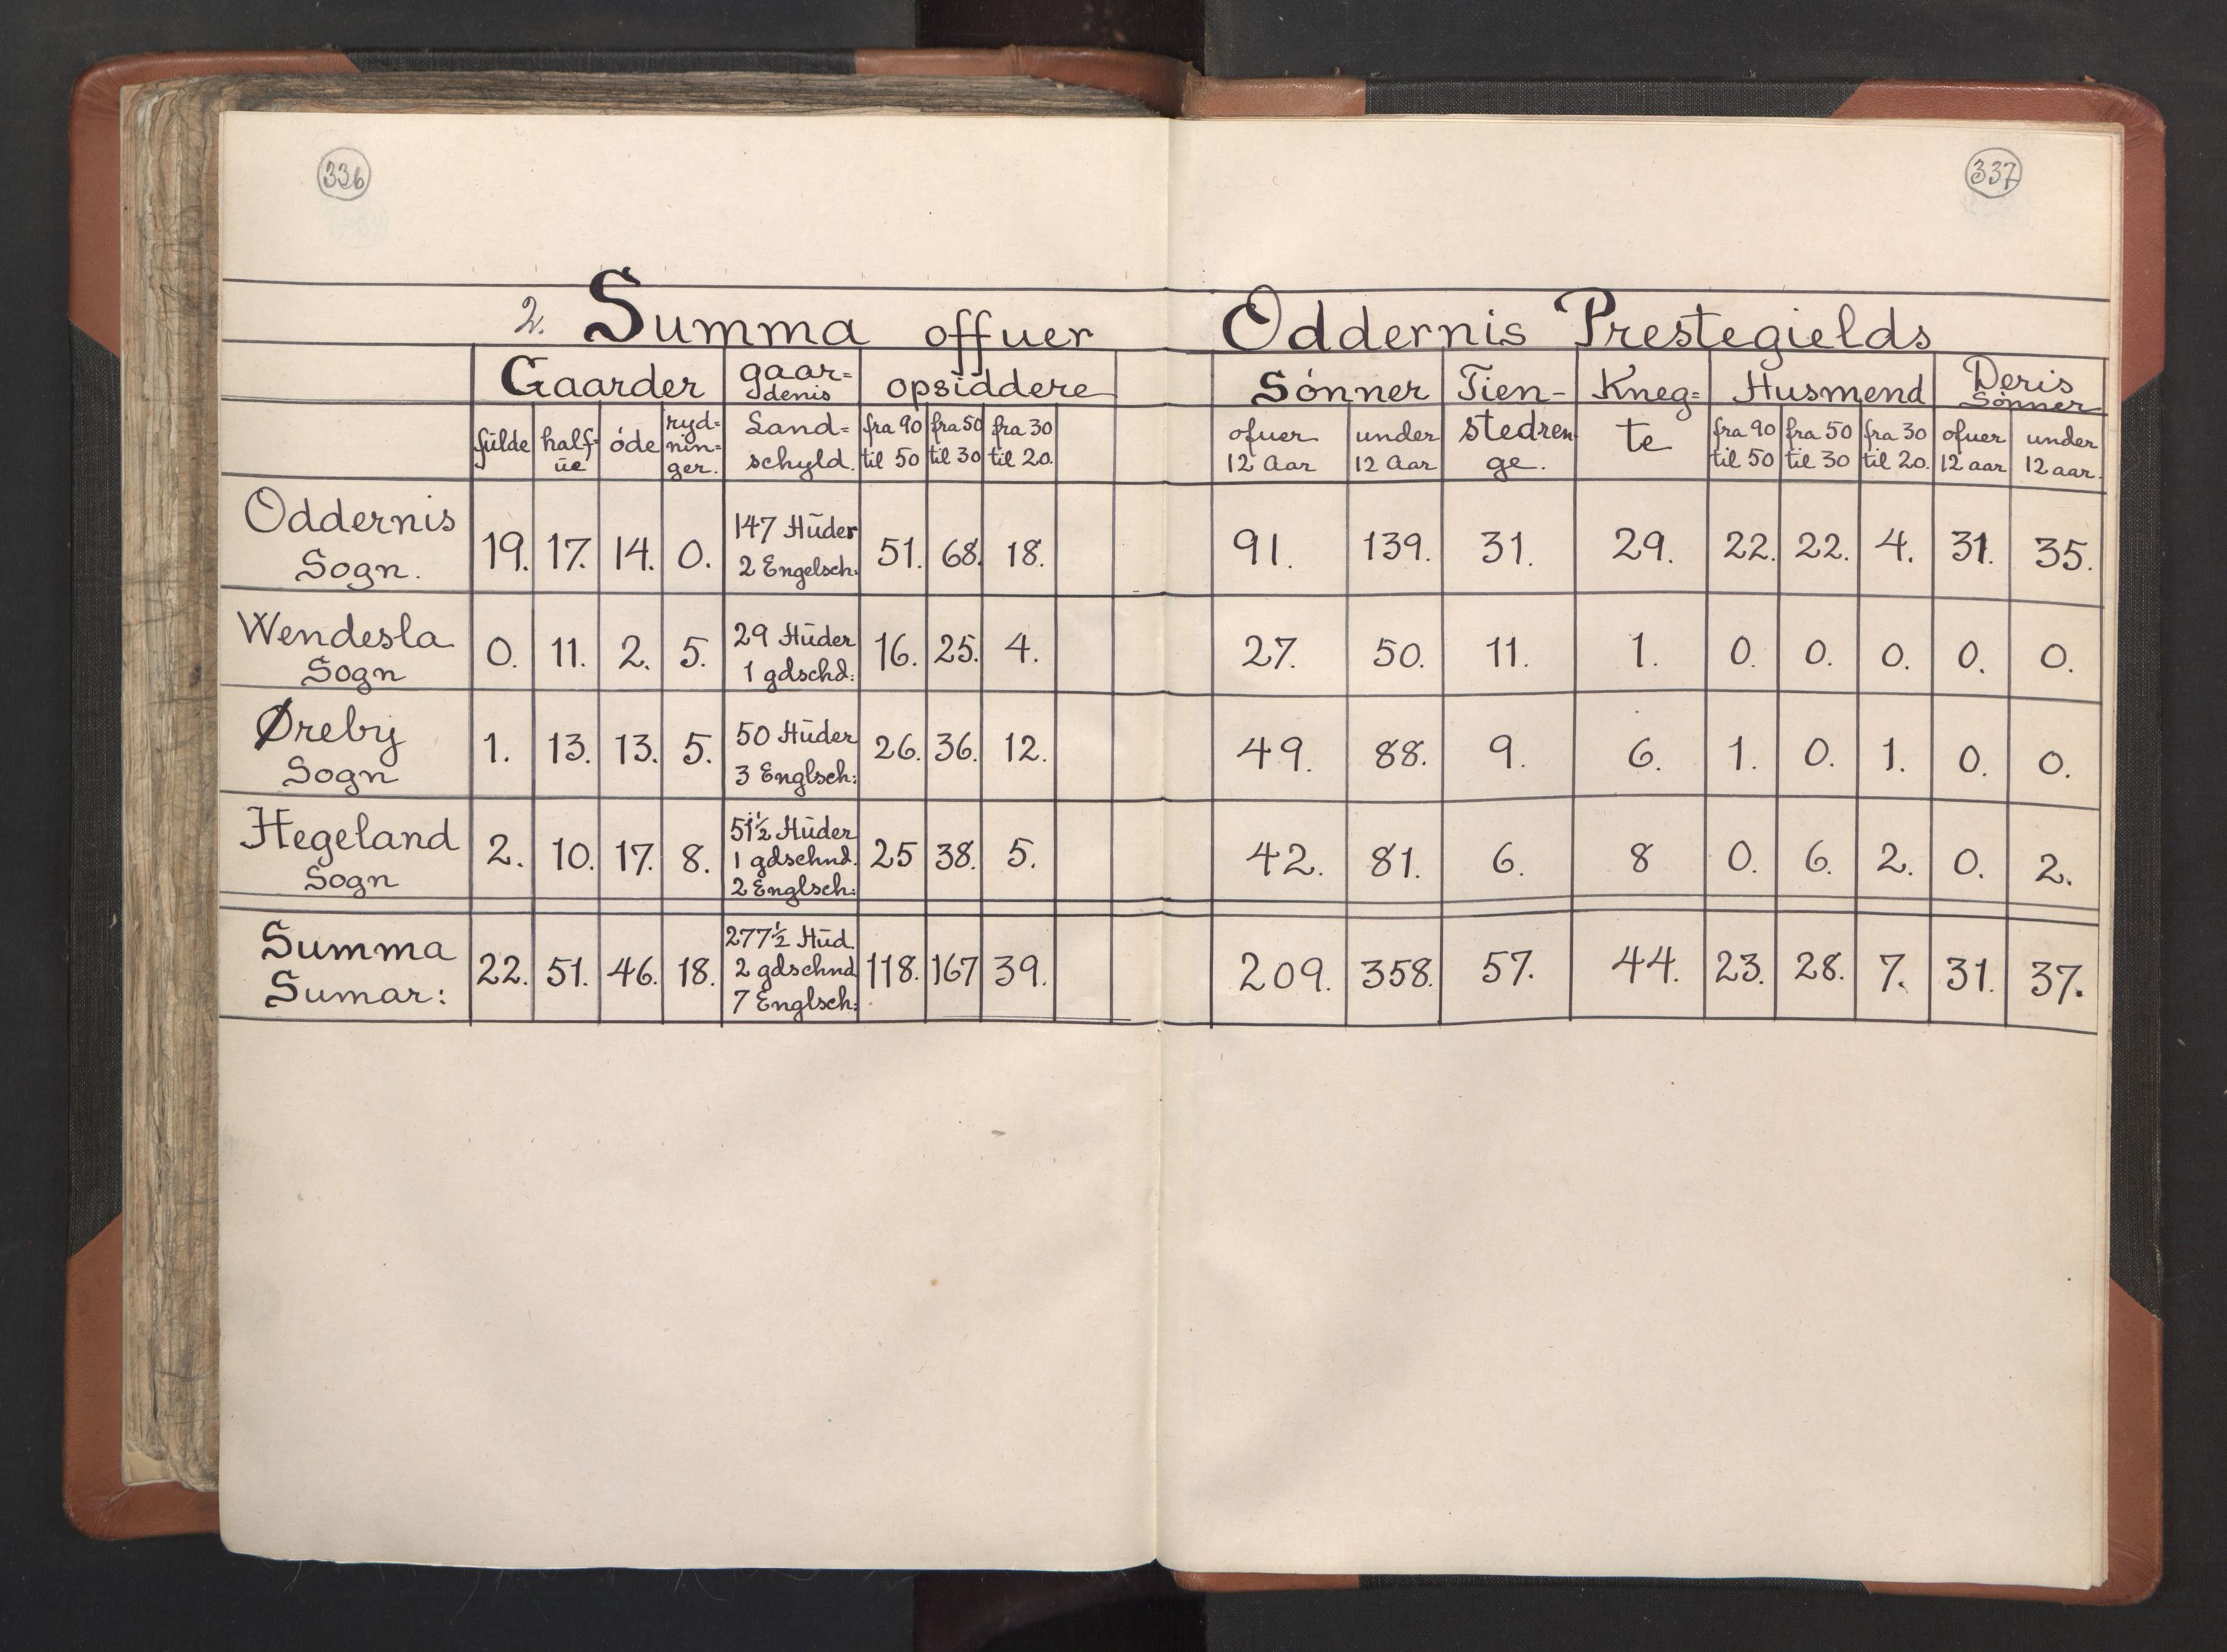 336
337
2. Summa offuer Oddernis Prestegields
Gaarder gaar= denis opsiddere Sónner Tien- Kneg= Husmend Deris Sónner
fülde half= üe óde ryd= nin= ger. Land= schyld. fra 90 til 50 fra 50 til 30 fra 30 til 20. ofuer 12 Aar under 12 Aar stedren ge. te fra 90 til 50 fra 50 til 30 fra 30 til 20. ofuer 12 aar under 12 aar.
Oddernis Sogn. 19. 17. 14. 0. 147 Hüder 2 Engelsch: 51. 68. 18. 91. 139. 31. 29. 22. 22. 4. 31. 35.
Wendesla Sogn 0. 11. 2. 5. 29 Hüder 1 gdschd: 16. 25. 4. 27. 50. 11. 1. 0. 0. 0. 0. 0.
Øreby Sogn 1. 13. 13. 5. 50 Hüder 3 Englsch: 26. 36. 12. 49. 88. 9. 6. 1. 0. 1. 0. 0.
Hegeland Sogn 2. 10. 17. 8. 51½ Hüder 1 gdschnd. 2 Englsch: 25 38. 5. 42. 81. 6. 8 0. 6. 2. 0. 2.
Summa Sumar: 22. 51. 46. 18. 277½ Hüd. 2 gdschnd 7 Englsch: 118. 167 39. 209. 358. 57. 44. 23. 28. 7. 31. 37.